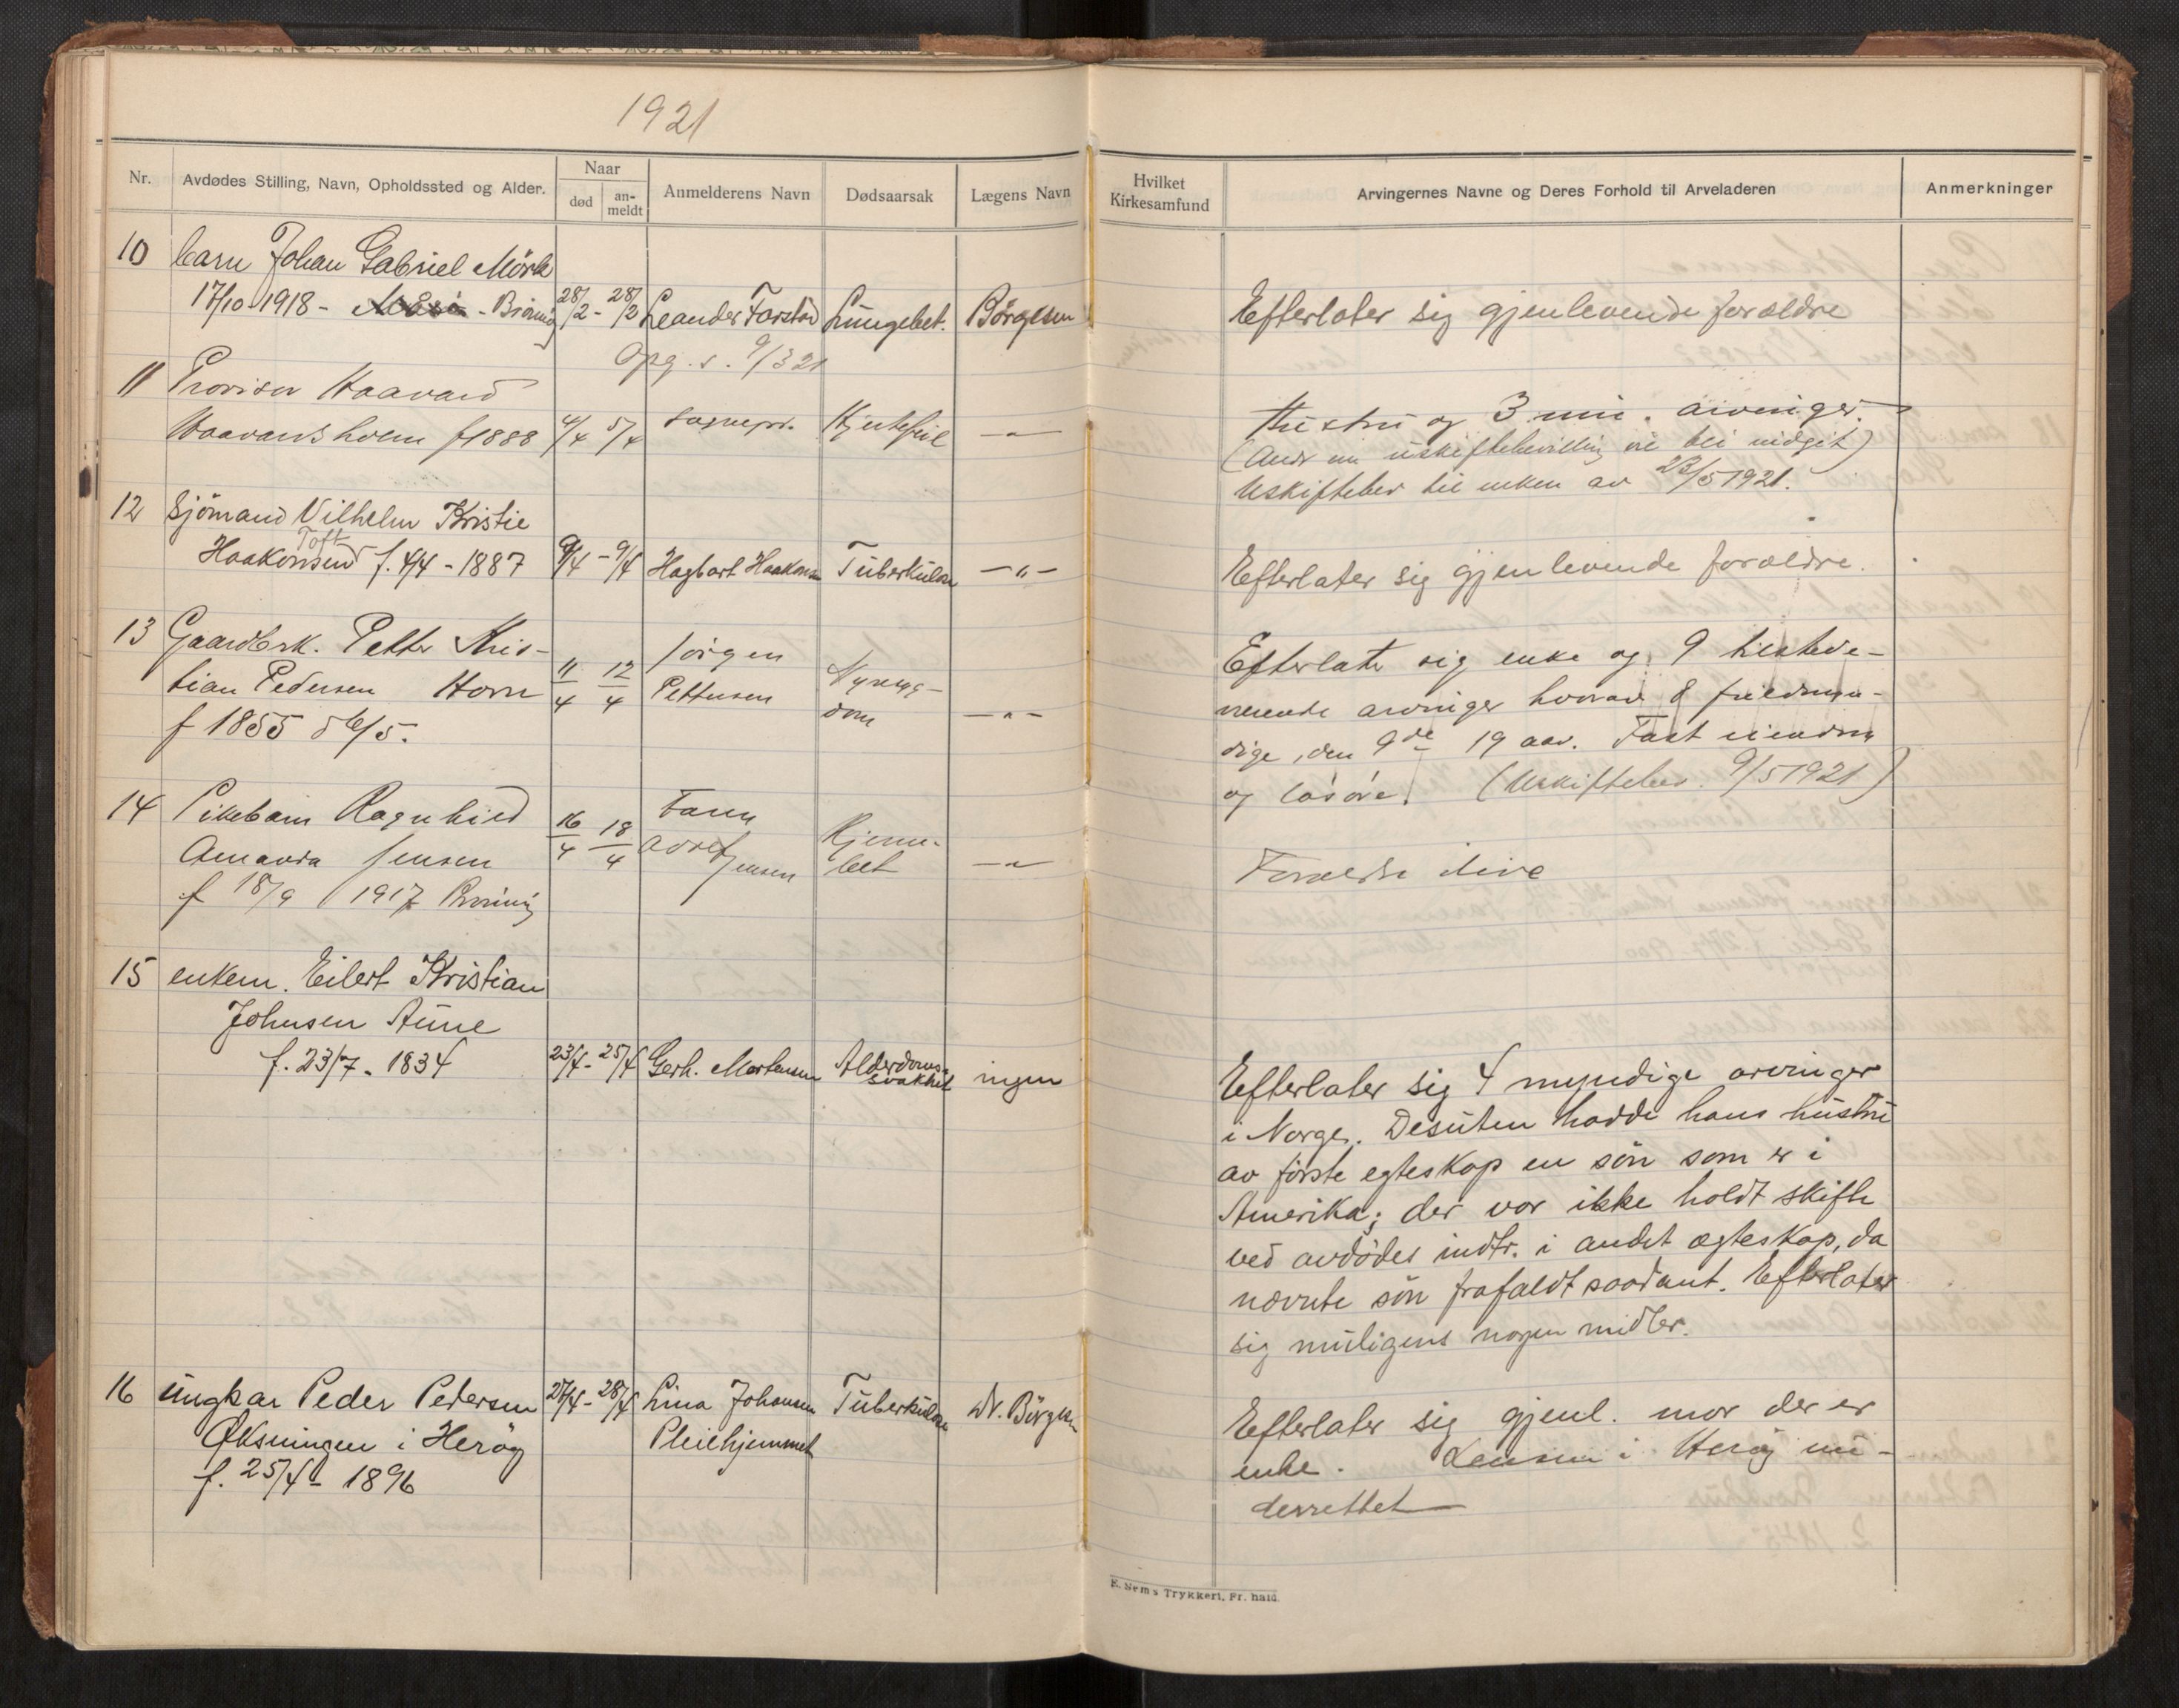 1921
Nr. Avdødes Stilling, Navn, Opholdssted og Alder. Naar død an-meldt Anmelderens Navn Dødsaarsak Lægens Navn
Hvilket Kirkesamfund Arvingernes Navne og Deres Forhold til Arveladeren Anmerkninger
10 barn Johan Gabriel Mörk
17/10-1918 - Brönnöy 28/2 - 28/2 Leander Torstad Lungebet. Börgesen
Efterlater sig gjenlevende forældre
Opg. s. 9/3 21
11 Provisor Haavard
Haavardsholm f 1888 4/4 5/4 sognepr. Hjertefeil -"-
Hustru og 3 min. arvinger.
(Andr om uskiftebevilling vil bli indgit)
Uskiftebev til enken av 23/5 1921.
12 Sjömand Vilhelm Kristie
Toft
Haakonsen f. 4/4 - 1887 9/4 - 9/4 Hagbart Haakonsen Tuberkulose -"-
Efterlater sig gjenlevende forældre.
13 Gaardbrk. Petter Kris-
tian Pedersen Horn
f 1855 6/5.
11/4 12/4
Jörgen
Pettersen
Nyresyg-
dom
-"-
Efterlater sig enke og 9 tilstede-
værende arvinger hvorav 8 fuldmyn-
dige, den 9de 19 aar. Fast eiendom
og lösöre. (Uskiftebev. 9/5 1921)
14 Pikebarn Ragnhild
Amanda Jensen
f 18/9 1917 Brönnöy
16/4 18/4
Faren
Jensen
Hjerne-
bet
-"-
Forældre ilive
15 enkem. Eilert Kristian
Johnsen Aune
f. 23/7 - 1834 23/4 - 25/4 Gerh. Mortensen Alderdoms-
svakhet ingen
Efterlater sig 4 myndige arvinger
i Norge. Desuten hadde hans hustru
av förste egteskap en sön som er i
Amerika; der var ikke holdt skifte
ved avdödes indtr. i andet ægteskap, da
nævnte sön frafaldt saadant. Efterlater
sig muligens nogen midler.
16 ungkar Peder Pedersen 27/4 - 28/4 Lina Johansen Tuberkulose Dr. Börgesen
Öksningen i Heröy Pleiehjemmet
f. 25/4 - 1896
Efterlater sig gjenl. mor der er
enke. Lensm i Heröy un-
derrettet
E. Nem's Trykkeri, Fr. hald.